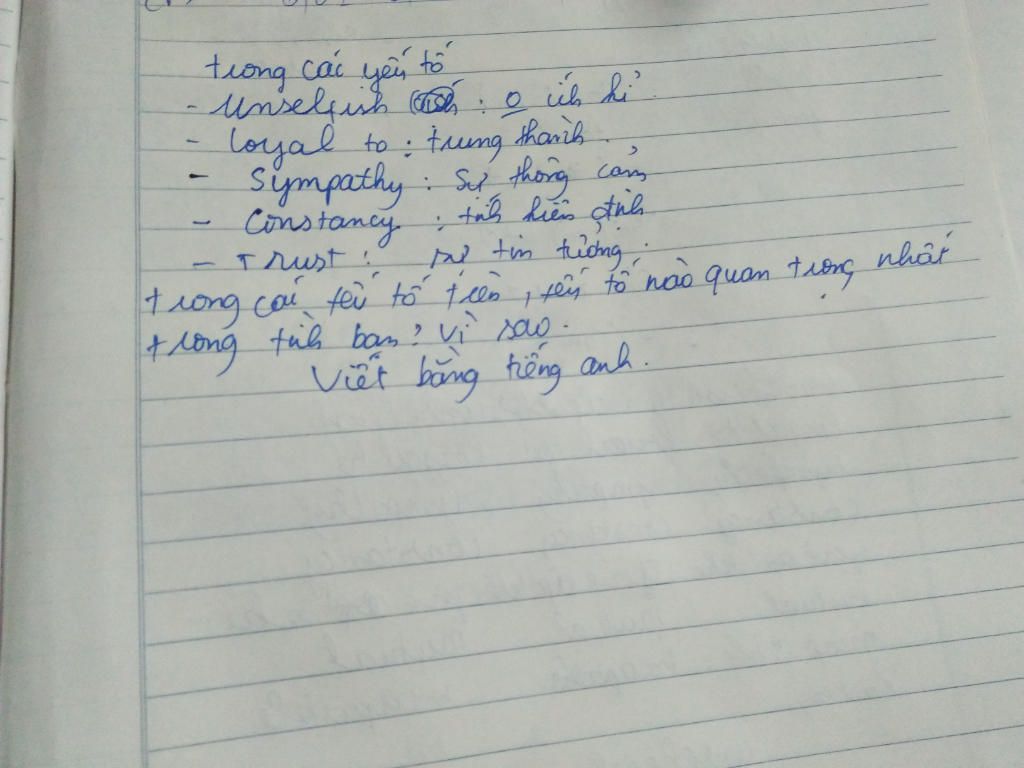 trong các yếu tố
- Unselfish : o ích kỉ
- loyal to : trung thành.
- Sympathy : Sự thông cảm
- Constancy : tính kiên định
- Trust : sự tin tưởng.
trong các yếu tố trên, yếu tố nào quan trọng nhất
trong tình bạn? Vì sao.
Viết bằng tiếng anh.